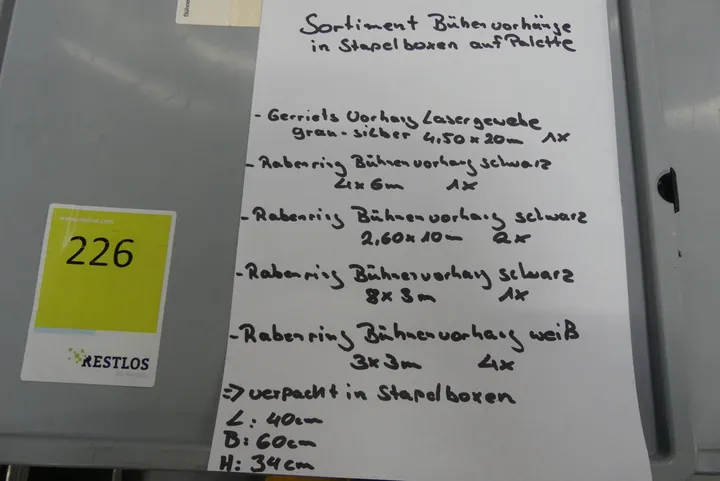 Sortiment Bühnenvorhänge
in Stapelboxen auf Palette
- Gerriets Vorhang Lasergewebe
grau-silber 4,50 x 20m 1x
- Rabenring Bühnenvorhang schwarz
4x6m 1x
- Rabenring Bühnenvorhang schwarz
2,60 x 10m 2x
- Rabenring Bühnenvorhang schwarz
8x3m 1x
- Rabenring Bühnenvorhang weiß
3x3m 4x
=> verpackt in Stapelboxen
L: 40cm
B: 60cm
H: 34cm
226
RESTLOS